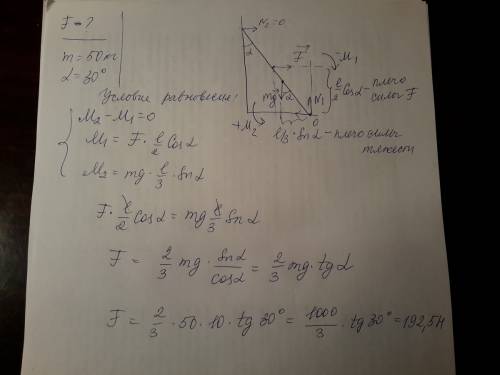 F - ?
m = 50 кг
α = 30°
N₂ = 0
α
F⃗
-M₁
mg
α
N₁
l/2 cosα - плечо
силы F
+M₂
O
l/3 · sinα - плечо силы
тяжести
Условие равновесия:
M₂ - M₁ = 0
M₁ = F · l/2 cosα
M₂ = mg · l/3 · sinα
F · l/2 cosα = mg l/3 sinα
F = 2/3 mg · sinα/cosα = 2/3 mg · tgα
F = 2/3 · 50 · 10 · tg 30° = 1000/3 · tg 30° = 192,5 Н